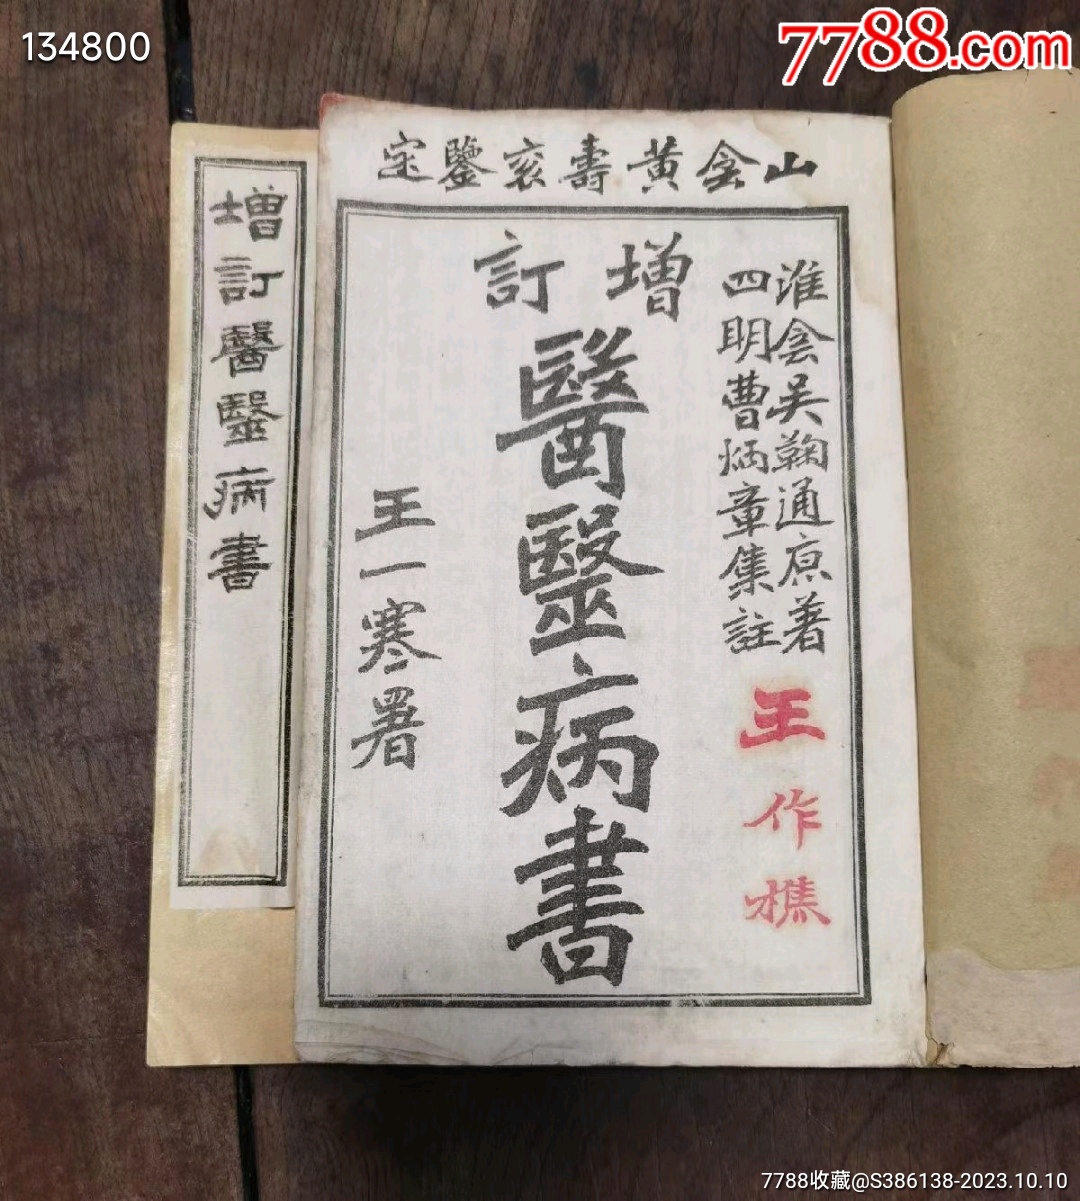 134800
7788.com
增訂醫醫病書
山侌黃壽衮鑒定
淮侌吳鞠通原著
四明曹炳章集註
增訂
醫醫病書
王一寒署
王作樵
7788收藏@S386138-2023.10.10